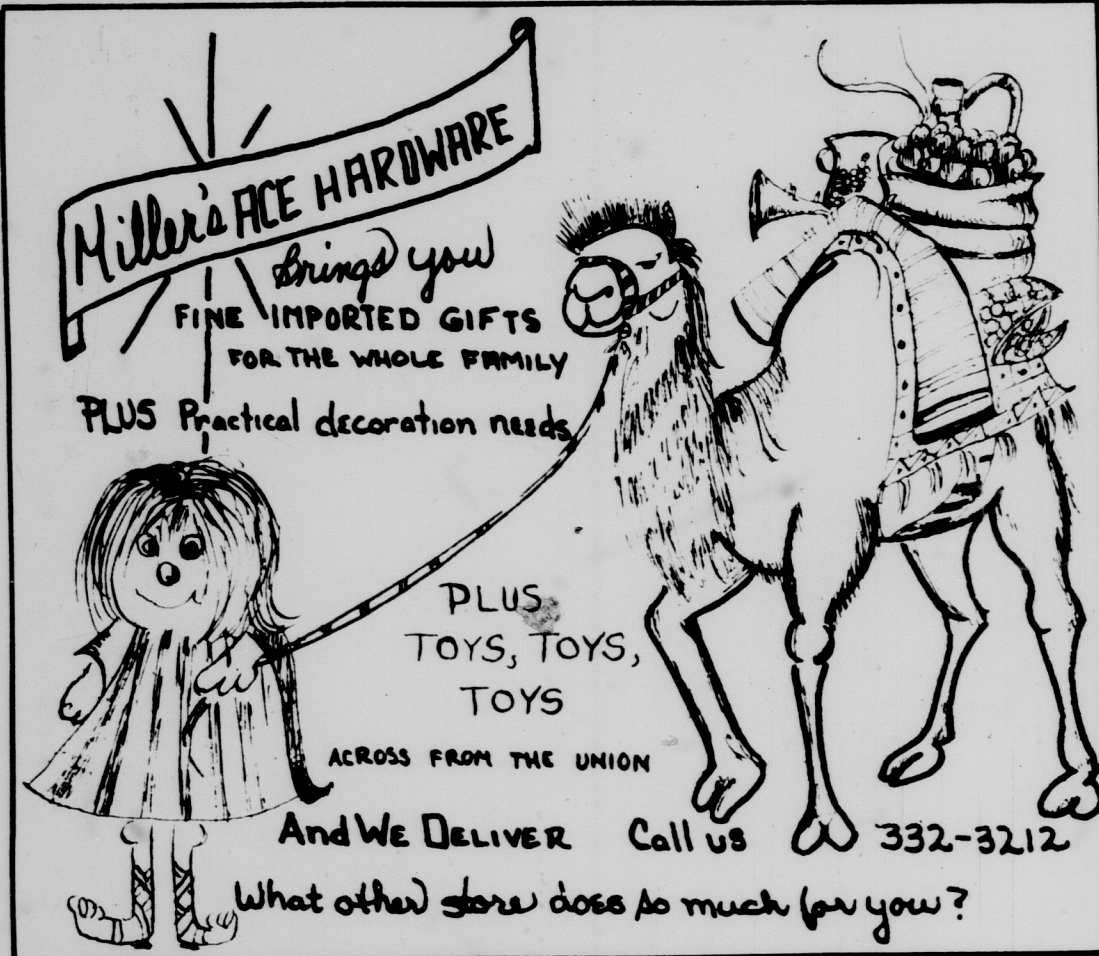 Miller's ACE HARDWARE
brings you
FINE IMPORTED GIFTS
FOR THE WHOLE FAMILY
PLUS Practical decoration needs
PLUS
TOYS, TOYS,
TOYS
ACROSS FROM THE UNION
And WE DELIVER Call us 332-3212
What other store does so much for you?